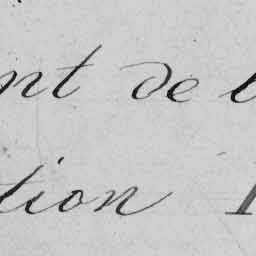 nt de l
tion